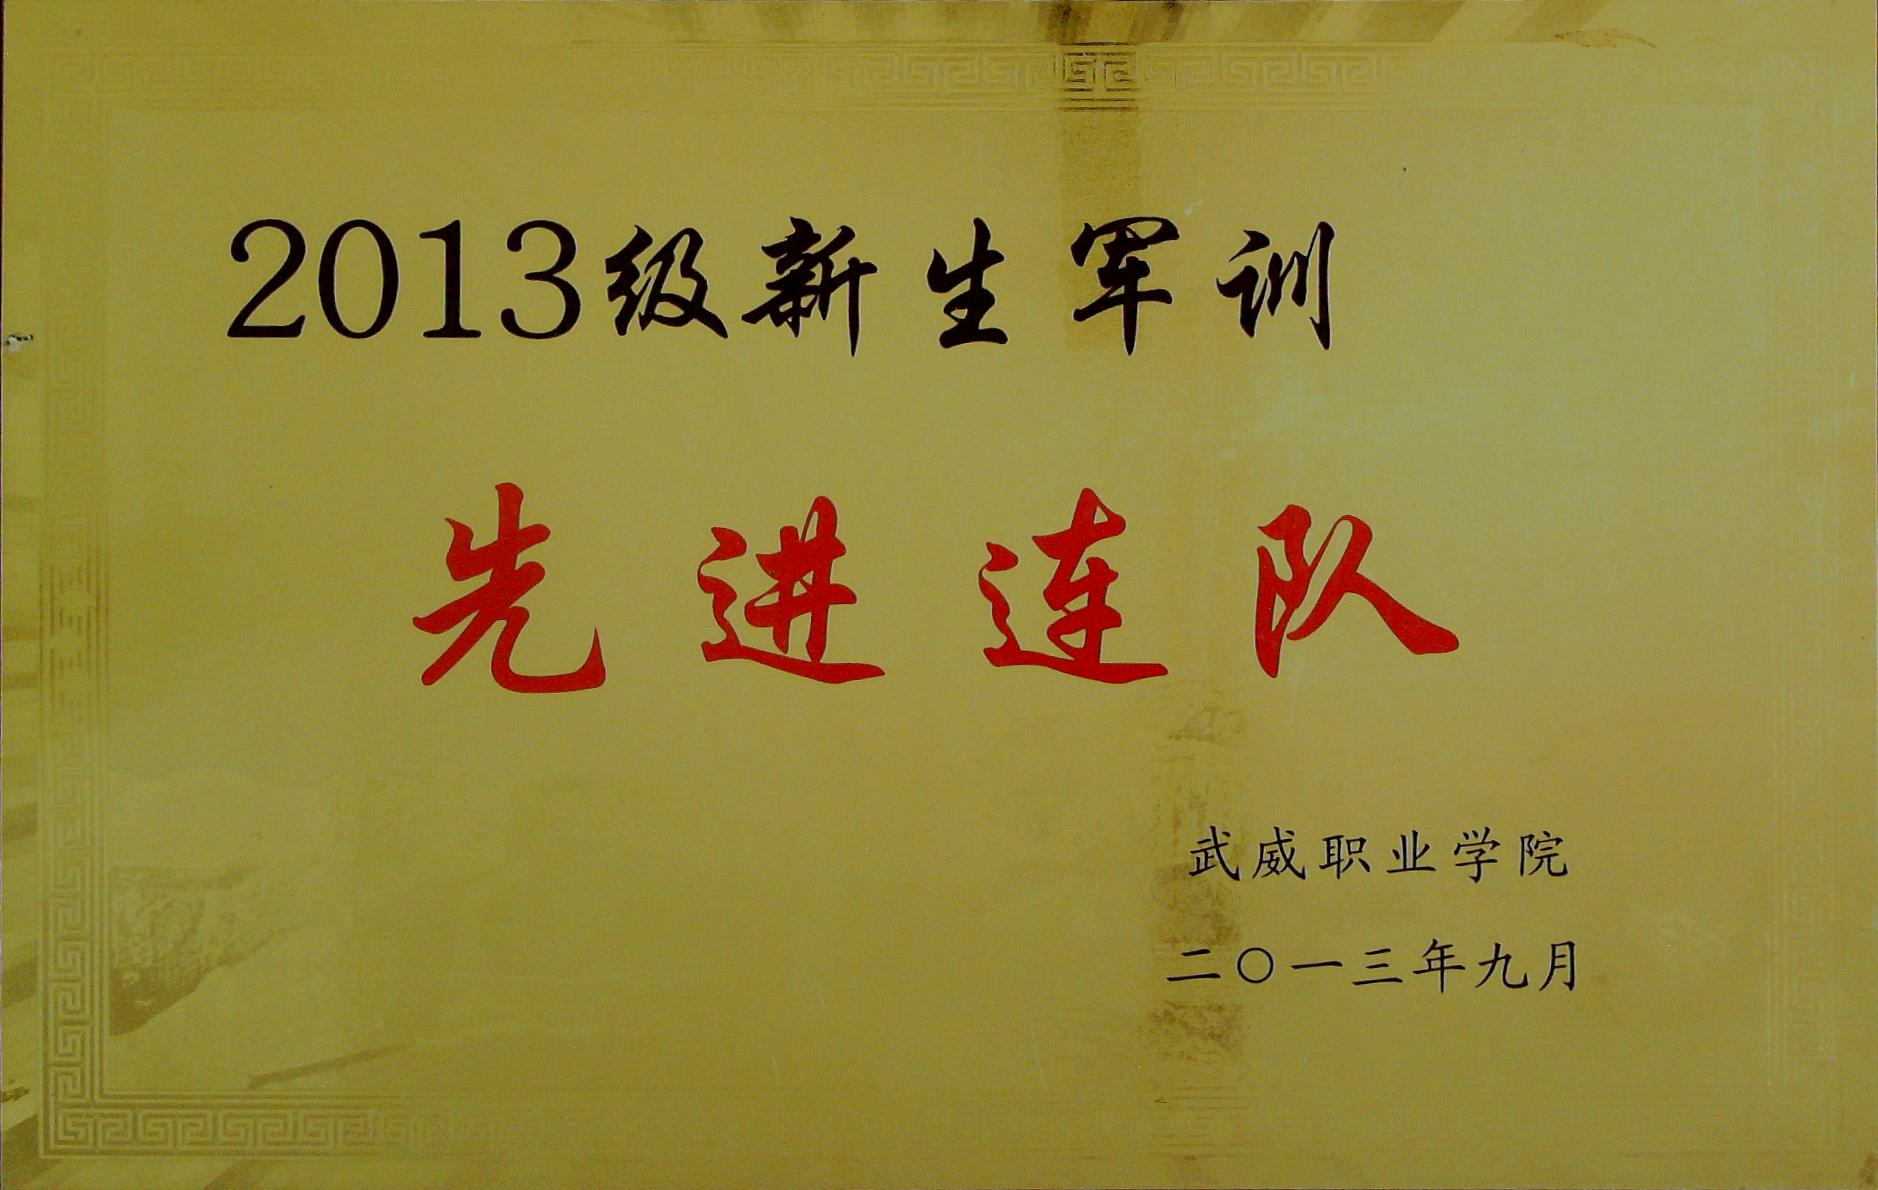 2013级新生军训
先进连队
武威职业学院
二〇一三年九月